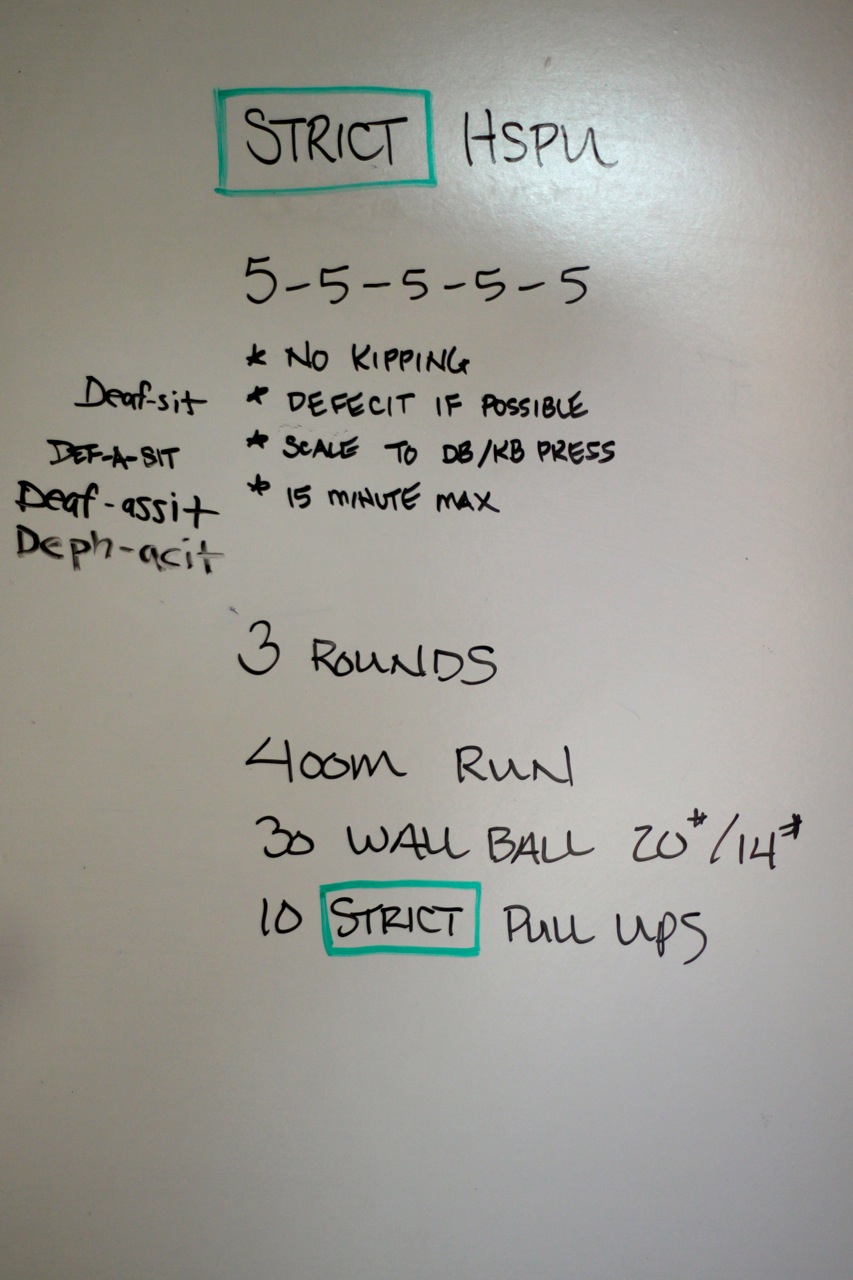 STRICT HSPU
5-5-5-5-5
* NO KIPPING
Deaf-sit * DEFECIT IF POSSIBLE
DEF-A-SIT * SCALE TO DB/KB PRESS
Deaf-assit * 15 MINUTE MAX
Deph-acit
3 ROUNDS
400m RUN
30 WALL BALL 20#/14#
10 STRICT PULL UPS